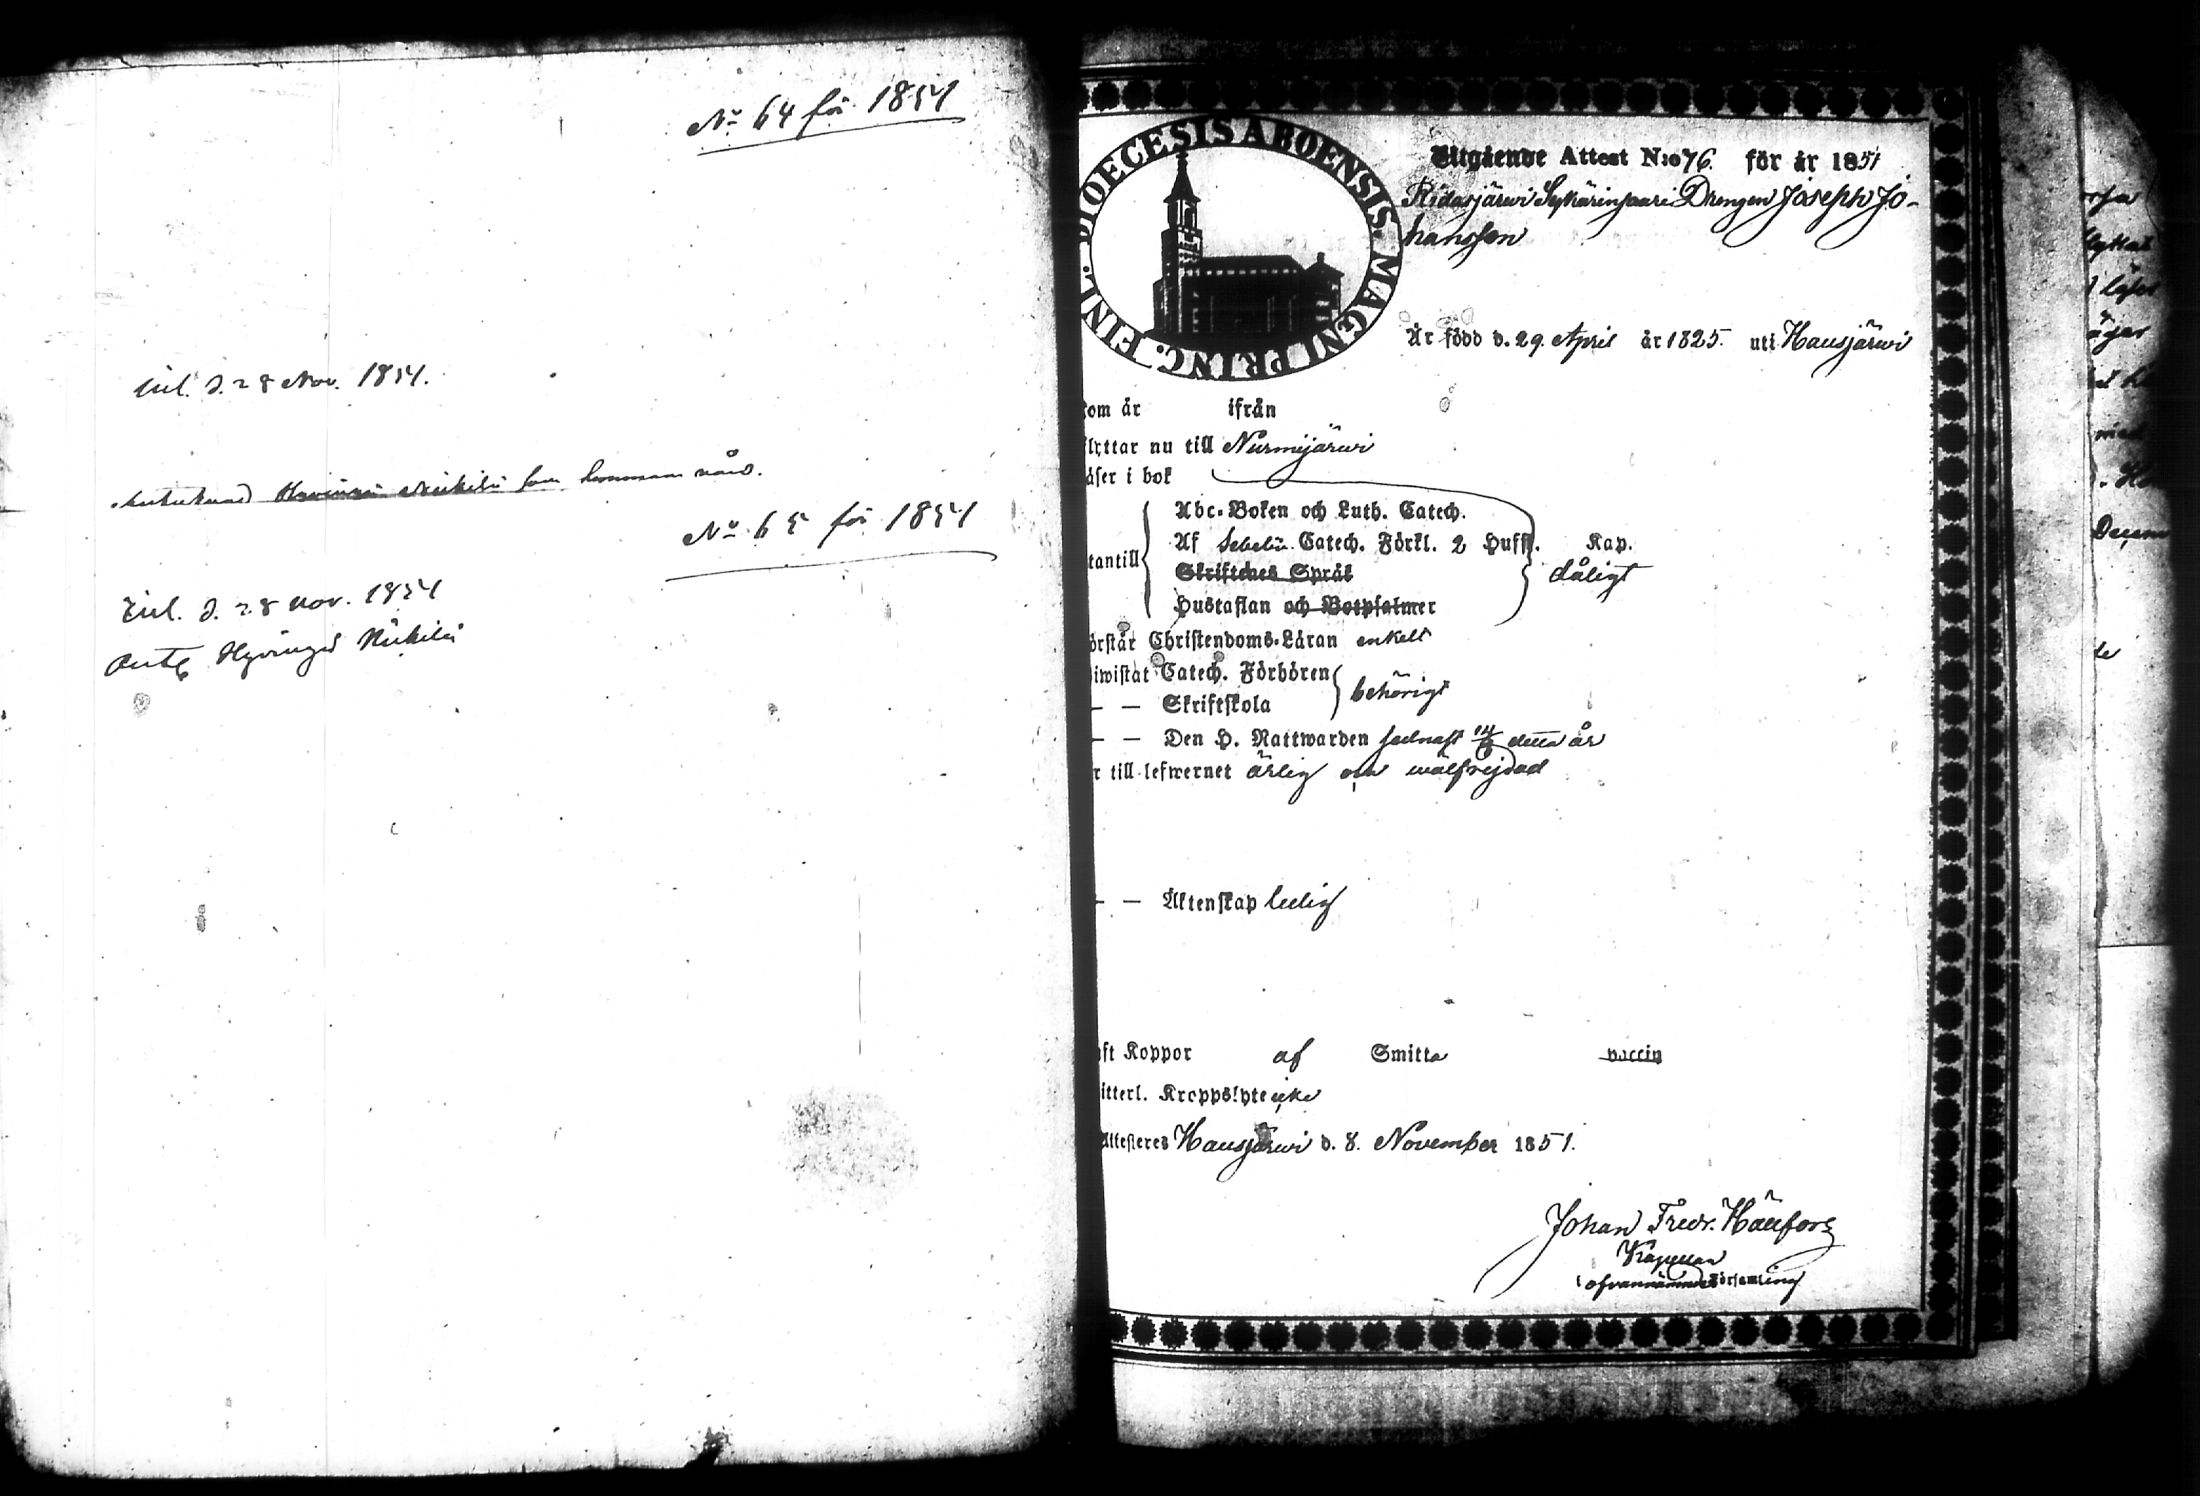 No 64 för 1851
Inl. d. 28 Nov. 1851.
Hyvinge Nikilä som kommer nåd.
No 65 för 1851
Inl. d. 28 Nov. 1851
Hyvinge Nikilä
DIOECESIS ABOENSIS. MAGNI PRINC. FINL.
Utgående Attest N:o 76. för år 1851
Ridasjärwi Sykärinsaari Drengen Joseph Jo-
hansson
Är född d. 29. April år 1825. uti Hausjärwi
kom år ifrån
flyttar nu till Nurmijärwi
läser i bok
Abc-Boken och Luth. Catech.
Af Sebelii Catech. Förkl. 2 Hufst. Kap.
utantill Skriftenes Språk dåligt
Hustaflan och Botpsalmer
förstår Christendoms-Läran enkelt
biwistat Catech. Förhören
— — Skriftskola behörigt
— — Den H. Nattwarden sednast detta år
är till lefwernet ärlig och wälfrejdad
— — Äktenskap ledig
haft Koppor af Smitta vaccin
witterl. Kroppslyte icke
Attesteres Hausjärwi d. 8. November 1851.
Johan Fredr. Häufors
Kapellan
i ofvannämnde Församling